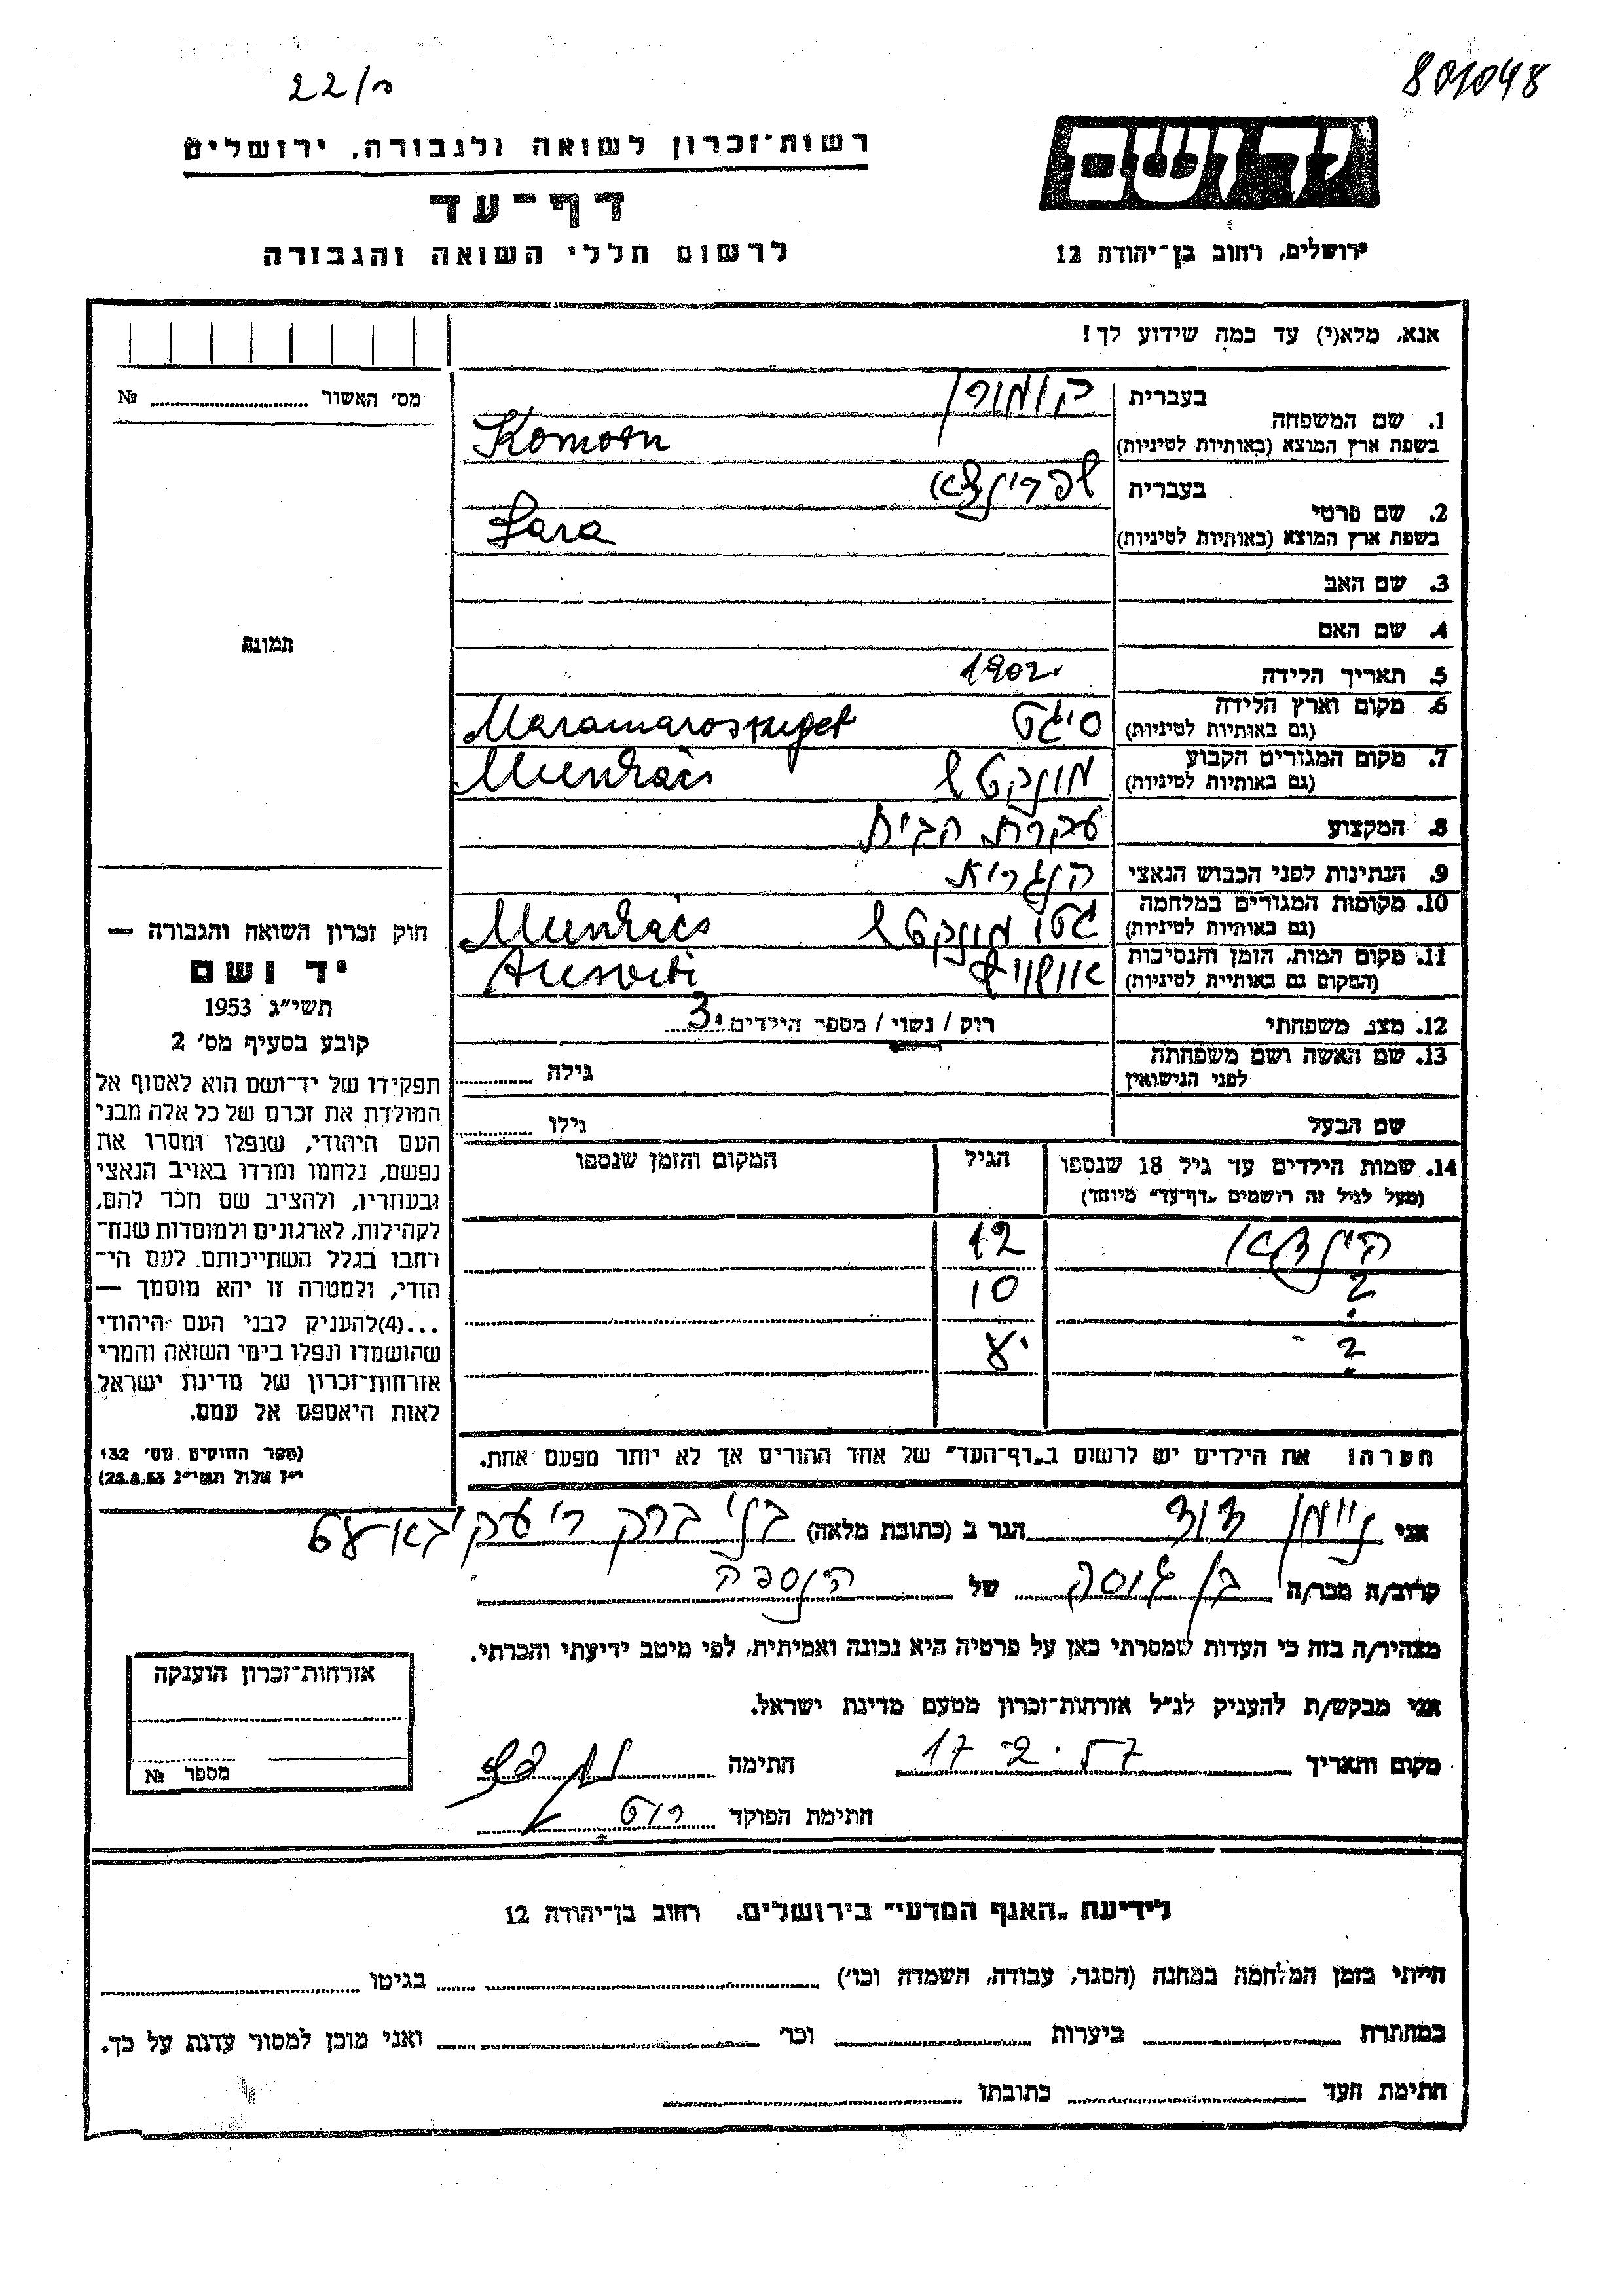 22/ח
801048
יד ושם
רשות־זכרון לשואה ולגבורה, ירושלים
דף־עד
לרשום חללי השואה והגבורה
ירושלים, רחוב בן־יהודה 12
אנא, מלא(י) עד כמה שידוע לך!
מס׳ האשור № 
1. שם המשפחה
בעברית קומורן
בשפת ארץ המוצא (באותיות לטיניות) Komorn
2. שם פרטי
בעברית שפרינצא
בשפת ארץ המוצא (באותיות לטיניות) Sara
3. שם האב
4. שם האם
5. תאריך הלידה 1902
6. מקום וארץ הלידה
(גם באותיות לטיניות) סיגט Maramarossziget
7. מקום המגורים הקבוע
(גם באותיות לטיניות) מונקטש Munkács
8. המקצוע עקרת הבית
9. הנתינות לפני הכבוש הנאצי הנגריא
10. מקומות המגורים במלחמה
(גם באותיות לטיניות) גטו מונקטש Munkács
11. מקום המות, הזמן והנסיבות
(המקום גם באותיות לטיניות) אושויץ Ausvitz
12. מצב משפחתי רוק / נשוי / מספר הילדים 3
13. שם האשה ושם משפחתה
לפני הנישואין גילה
שם הבעל גילו
14. שמות הילדים עד גיל 18 שנספו
(מעל לגיל זה רושמים „דף־עד״ מיוחד)
הגיל
המקום והזמן שנספו
הינדא 12
? 10
? 8
הערה! את הילדים יש לרשום ב„דף־העד״ של אחד ההורים אך לא יותר מפעם אחת.
תמונה
חוק זכרון השואה והגבורה —
יד ושם
תשי״ג 1953
קובע בסעיף מס׳ 2
תפקידו של יד־ושם הוא לאסוף אל
המולדת את זכרם של כל אלה מבני
העם היהודי, שנפלו ומסרו את
נפשם, נלחמו ומרדו באויב הנאצי
ובעוזריו, ולהציב שם וזכר להם,
לקהילות, לארגונים ולמוסדות שנח־
רבו בגלל השתייכותם לעם הי־
הודי, ולמטרה זו יהא מוסמך —
...(4) להעניק לבני העם היהודי
שהושמדו ונפלו בימי השואה והמרי
אזרחות־זכרון של מדינת ישראל
לאות היאספם אל עמם.
(ספר החוקים מס׳ 132
י״ז אלול תשי״ג 28.8.53)
אני ניימן דוד הגר ב (כתובת מלאה) בני ברק ר׳ עקיבא
קרוב/ה מכר/ה בן גיסה של הנספה
מצהיר/ה בזה כי העדות שמסרתי כאן על פרטיה היא נכונה ואמיתית, לפי מיטב ידיעתי והכרתי.
אני מבקש/ת להעניק לנ״ל אזרחות־זכרון מטעם מדינת ישראל.
מקום ותאריך 17.2.57 חתימה
חתימת הפוקד רוט
אזרחות־זכרון הוענקה
מספר №
לידיעת „האגף המדעי״ בירושלים, רחוב בן־יהודה 12
הייתי בזמן המלחמה במחנה (הסגר, עבודה, השמדה וכו׳) בגיטו
במחתרת ביערות וכו׳ ואני מוכן למסור עדות על כך.
חתימת העד כתובתו